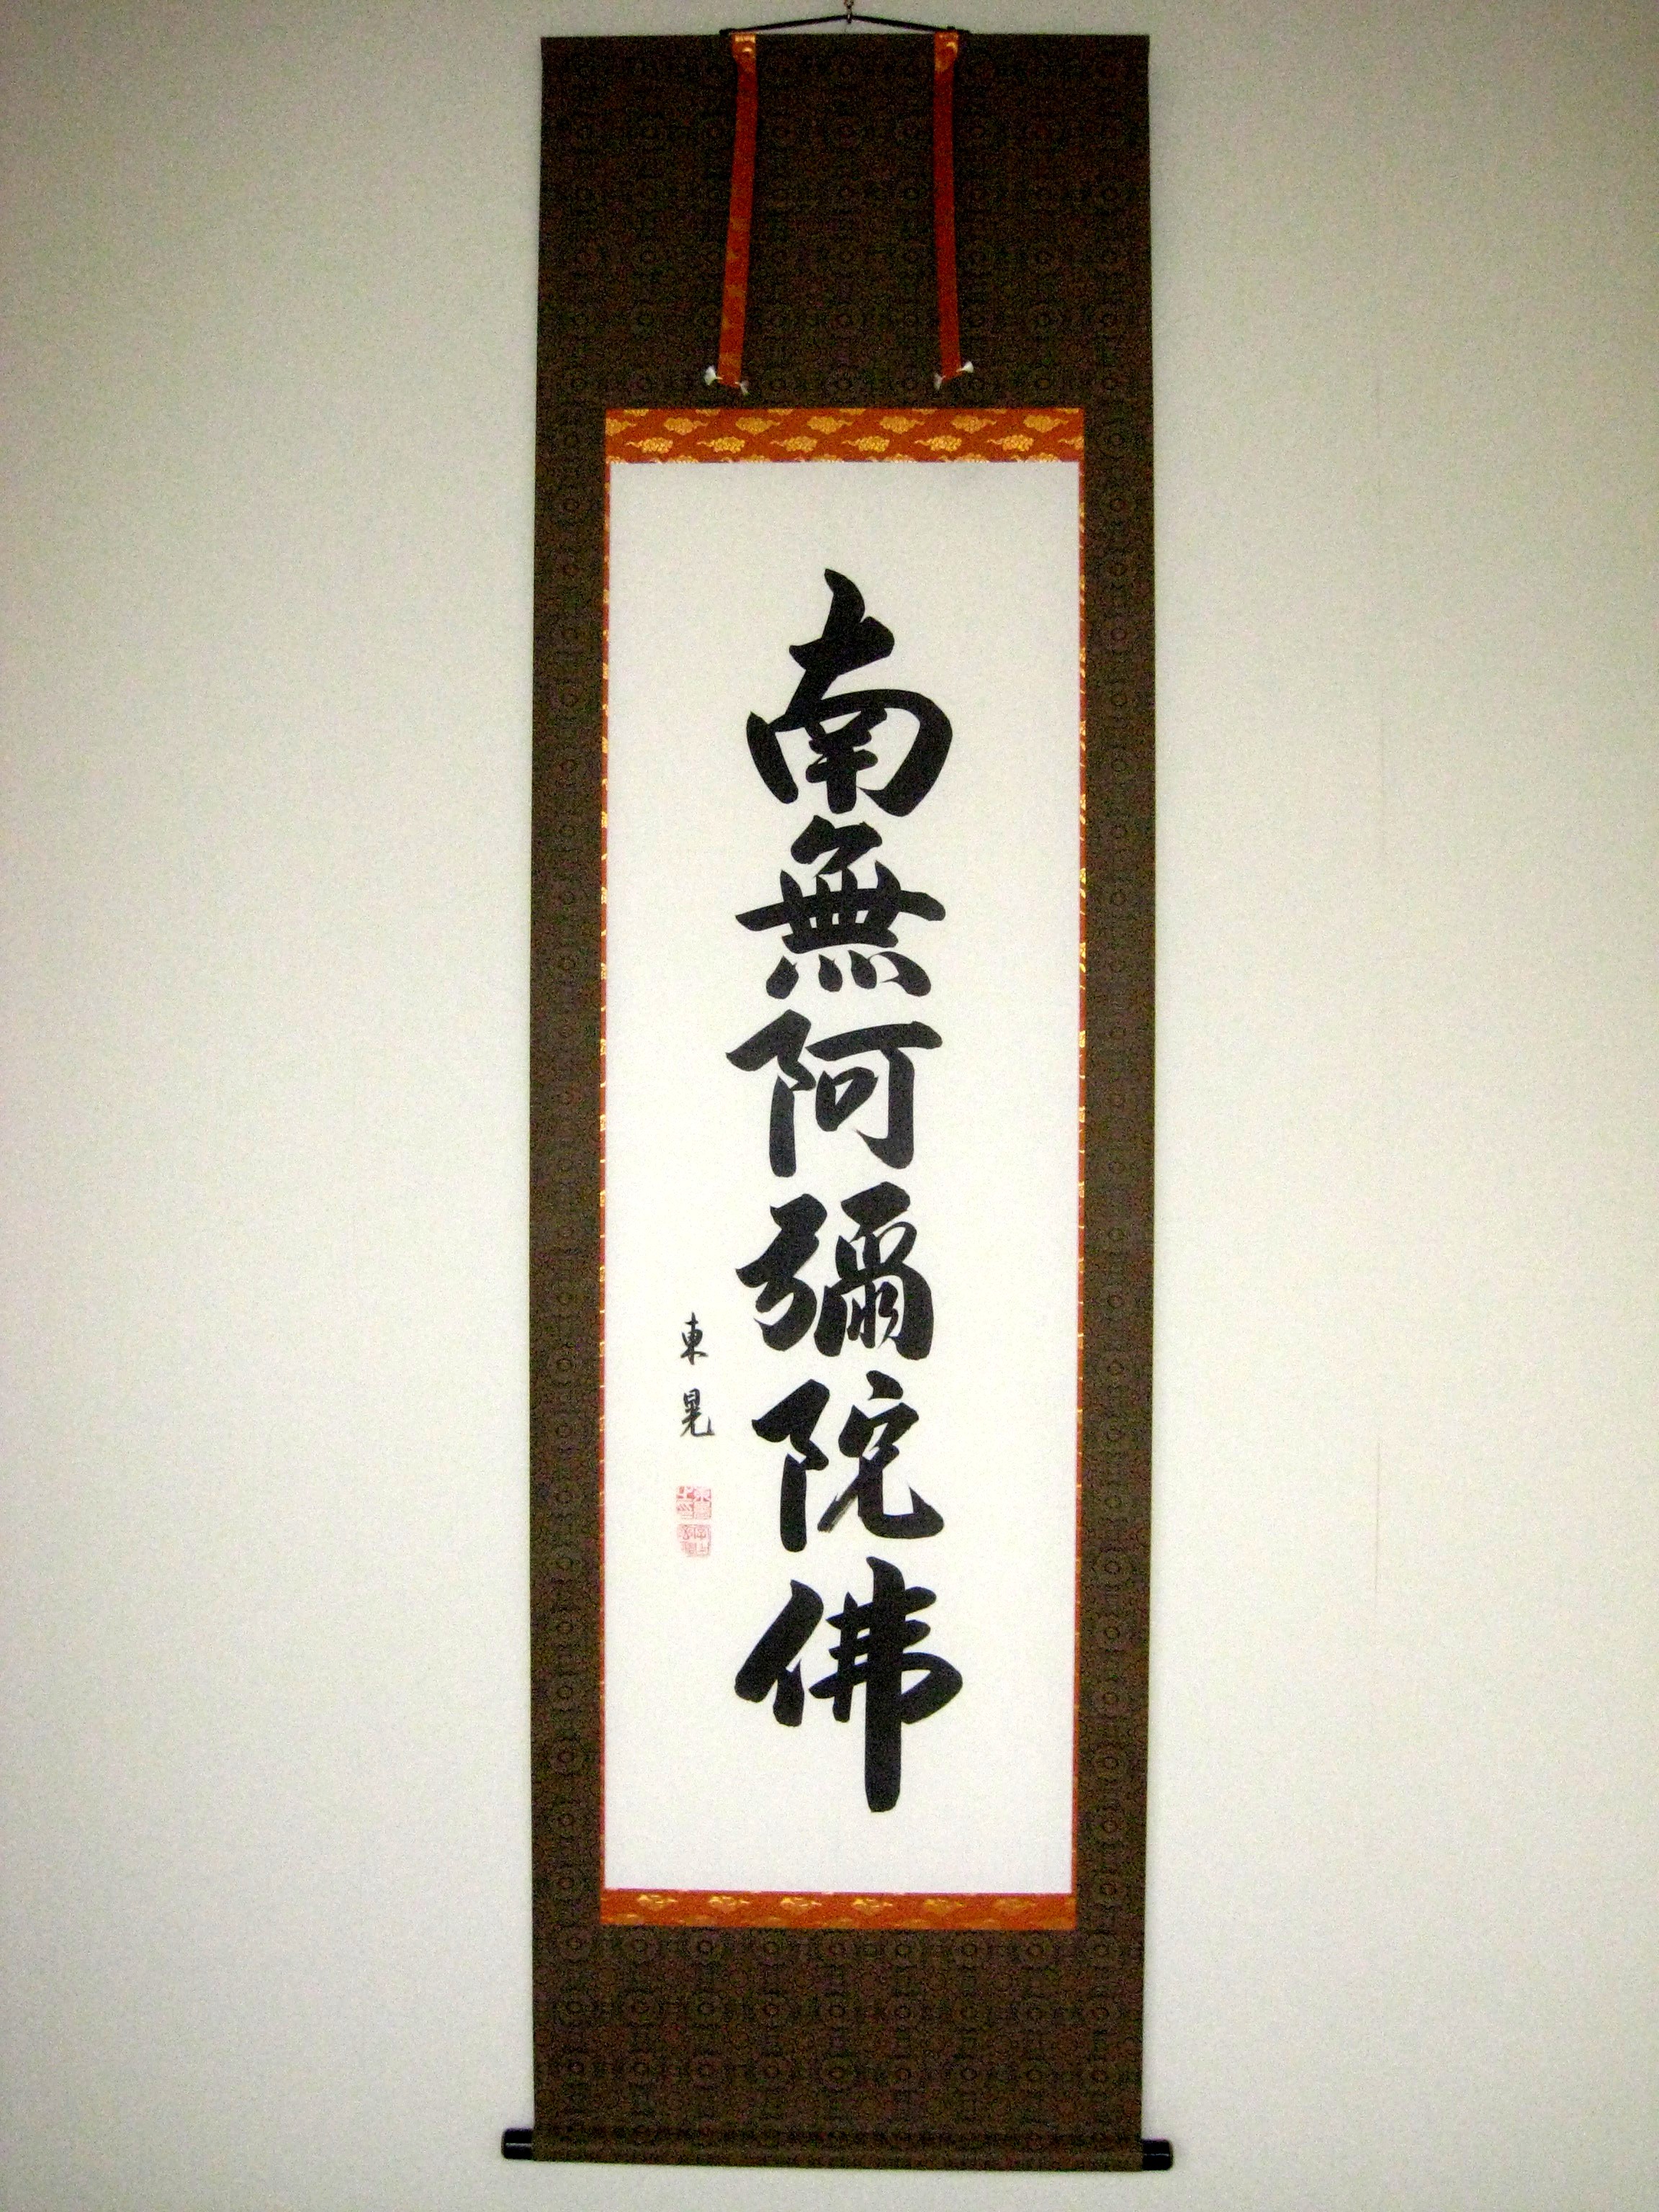 南無阿彌陀佛
東晃